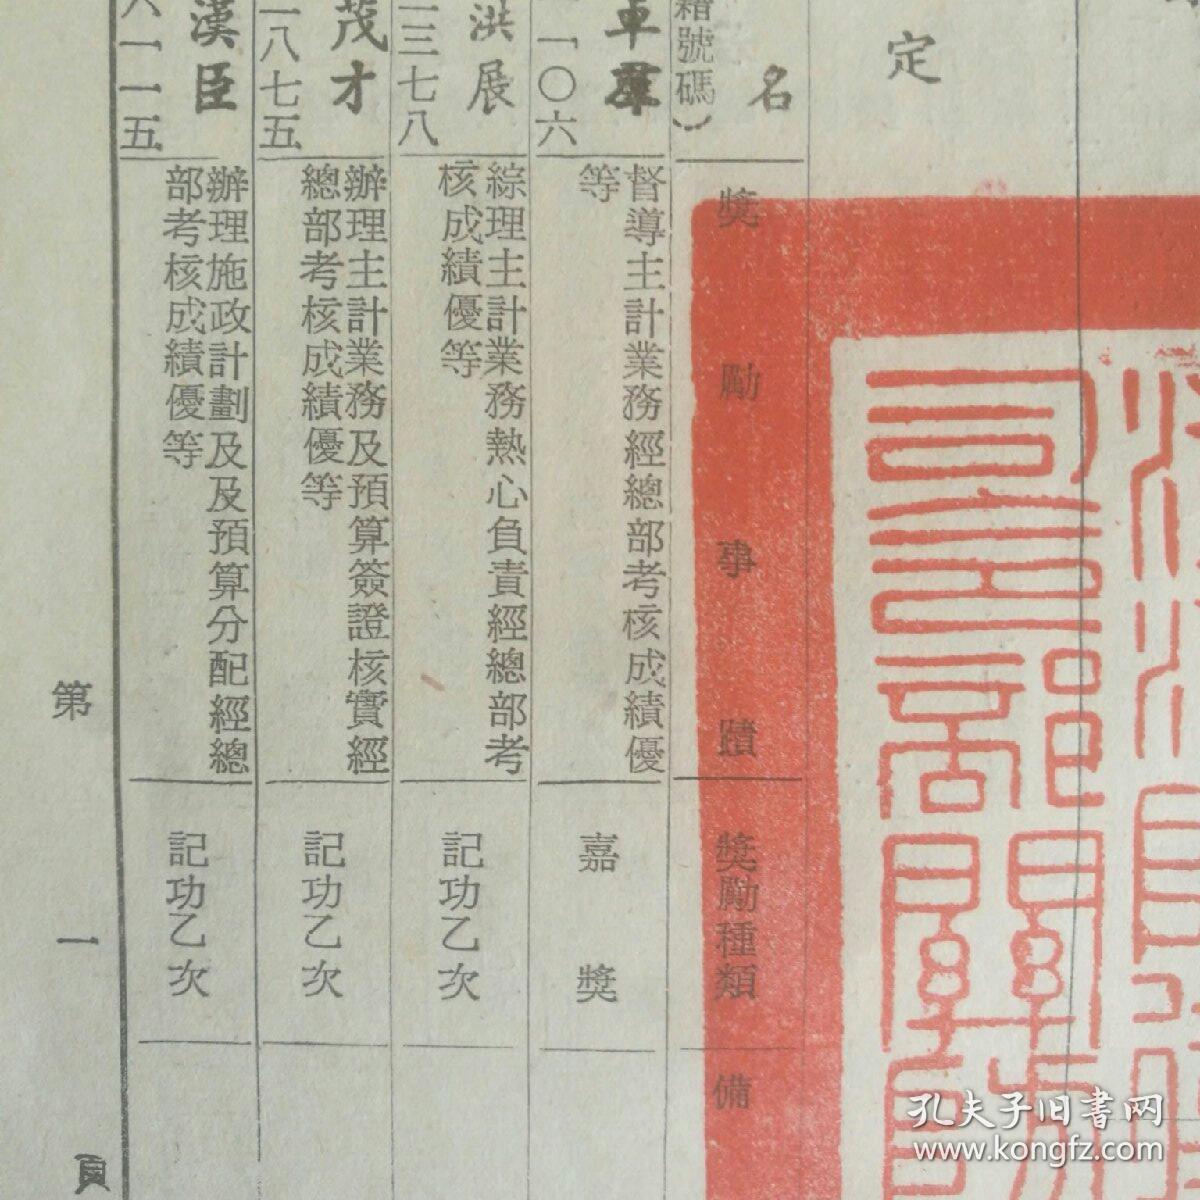 定
名
號碼）
獎勵事蹟
獎勵種類
備
一〇六
督導主計業務經總部考核成績優
等
嘉獎
洪展
一三七八
綜理主計業務熱心負責經總部考
核成績優等
記功乙次
茂才
一八七五
辦理主計業務及預算簽證核實經
總部考核成績優等
記功乙次
漢臣
六一一五
辦理施政計劃及及預算分配經總
部考核成績優等
記功乙次
第一頁
孔夫子旧书网
www.kongfz.com